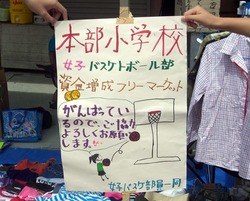 本部小学校
女子バスケットボール部
資金増成フリーマーケット
がんばってい
るので、ご協力
よろしくお願い
します。!!
女子バスケ部員一同